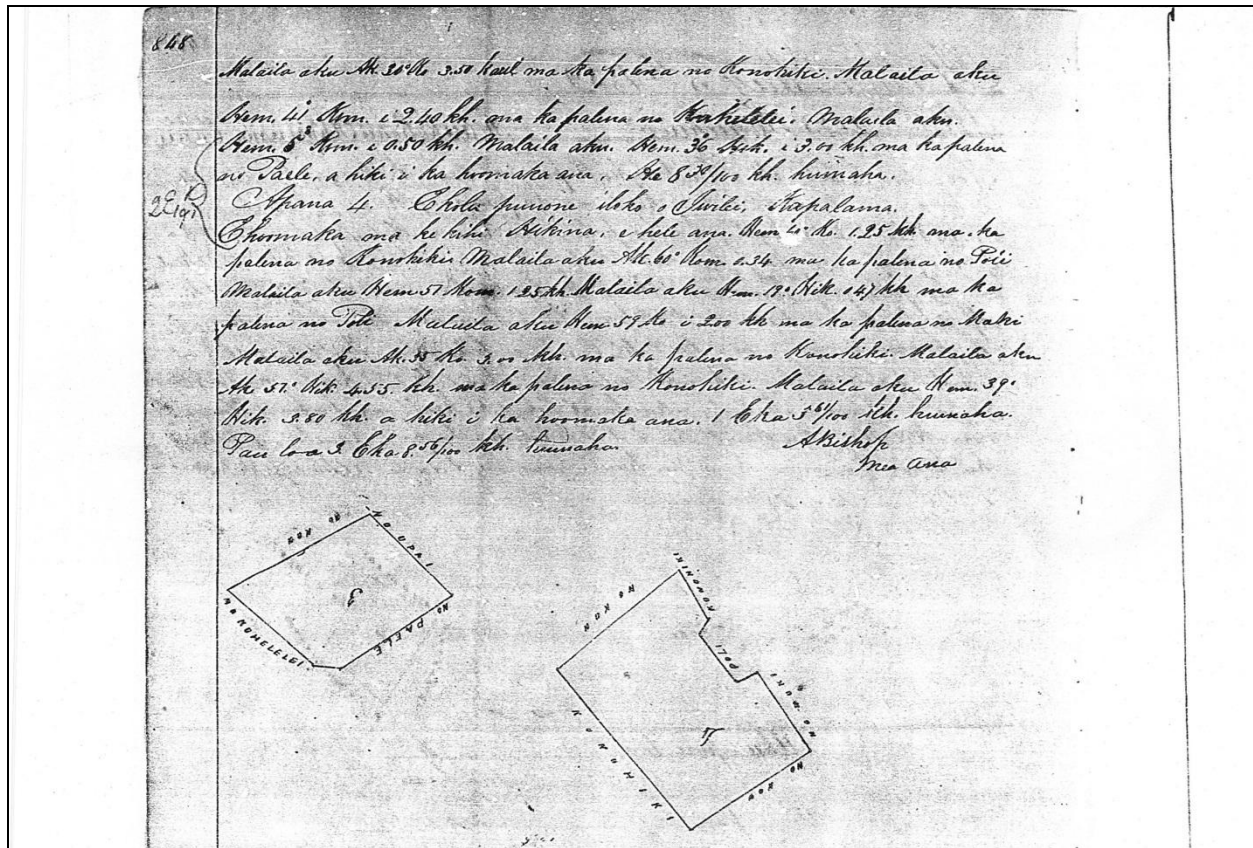 848
Malaila aku Ak. 30° Ko 3.50 kaul ma ka palena no Konohiki. Malaila aku
Hem. 41° Kom. i 2.40 kh. ana ka palena no Kahelelei. Malaila aku.
Hem. 5° Kom. i 0.50 kh. Malaila aku. Hem. 36 Hik. i 3.00 kh. ma ka palena
no Paele, a hiki i ka hoomaka ana. He 8 30/100 kh. kuinaha.
Apana 4. Ekolu puuone iloko o Iwilei, Kapalama.
E hoomaka ma ke kihi Hikina, e hele ana. Hem 40° Ko. 1.25 kh. ma. ka
palena no Konohiki Malaila aku Ak. 60° Kom. 0.34 ma ka palena no Poli
Malaila aku Hem 57 Kom. 1.25 kh. Malaila aku Hem. 19° Hik. 0.47 kh ma ka
palena no Poli Malaila aku Hem 59 Ko i 2.00 kh ma ka palena no Maki
Malaila aku Ak. 35 Ko 3.00 kh. ma ka palena no Konohiki. Malaila aku
Ak 57.° Hik. 4.55. kh. ma ka palena no Konohiki Malaila aku Hem. 39°
Hik. 3.80 kh. a hiki i ka hoomaka ana. 1 Eka 5 61/100 kh. kuinaha.
Pau loa 3 Eka 8. 56/100 kh. kuinaha.
A Bishop
Mea Ana
NO UPAI
NO PAELE
NO KOHELELEI.
3
KONOHIKI
POLI
NO MOKI
KONOHIKI
4